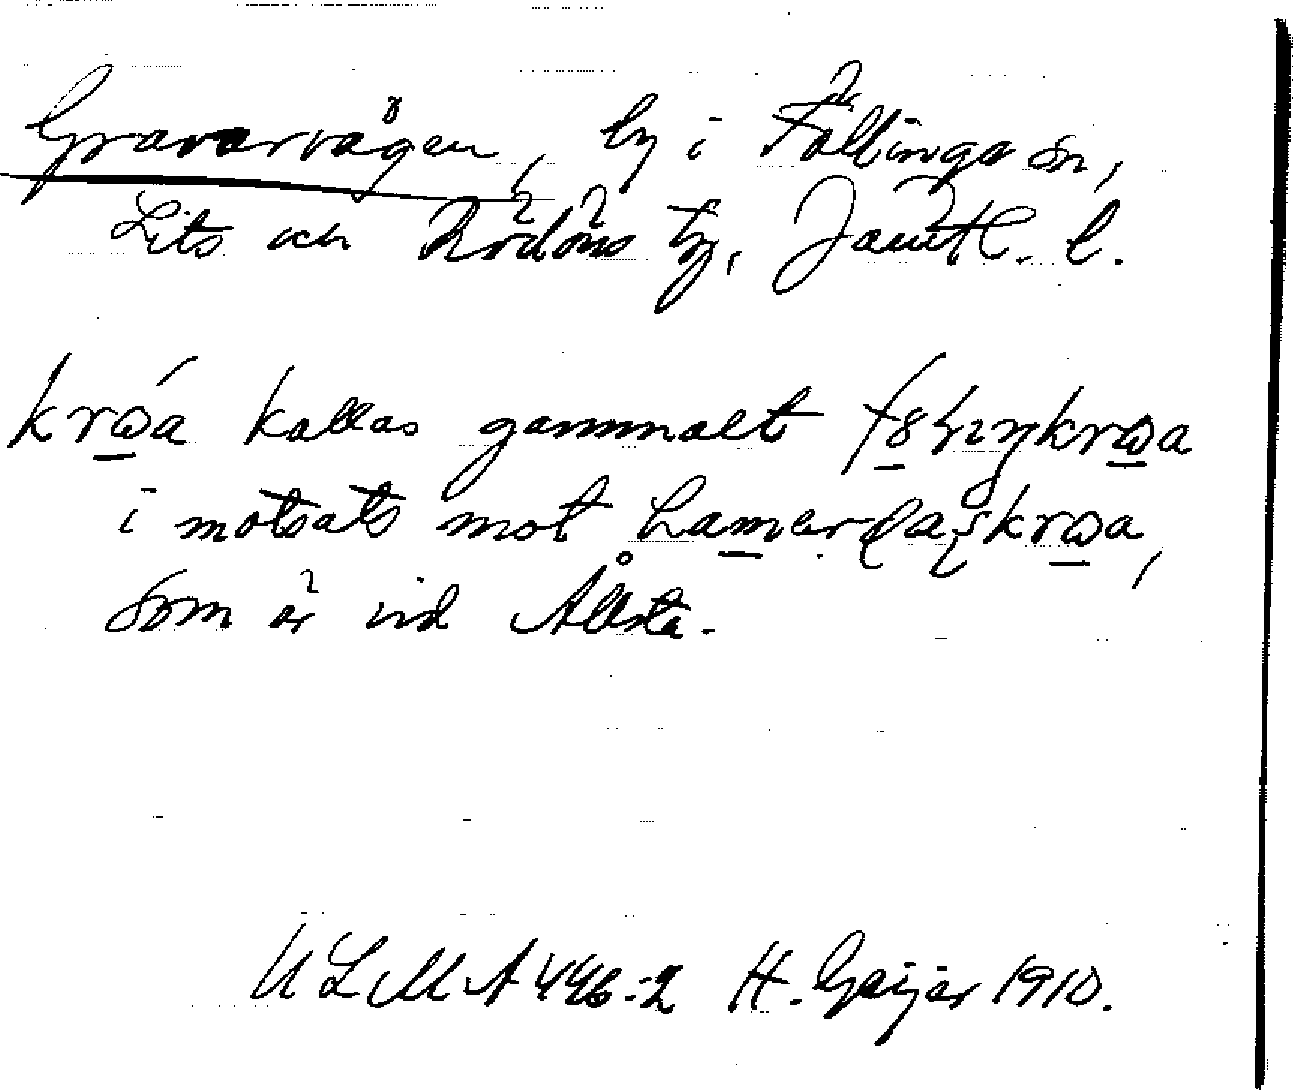 Gravarvågen, by i Föllinge sn,
Lits och Rödöns tg, Jämtl. l.
krɷa kallas gammalt
i motsats mot
som är vid Ålsta.
ULMA 446:2 H. Geijer 1910.